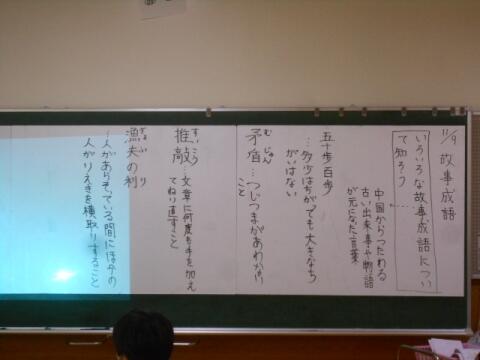 11/9 故事成語
いろいろな故事成語につい
て知ろう
中国からつたわる
古い出来事や物語
が元になった言葉
五十歩百歩
…多少はちがっても大きなち
がいはない
むじゅん
矛盾…つじつまがあわない
こと
すいこう
推敲…文章に何度も手を加え
てねり直すこと
ぎょふ り
漁夫の利
…人があらそている間にほかの
人がりえきを横取りすること